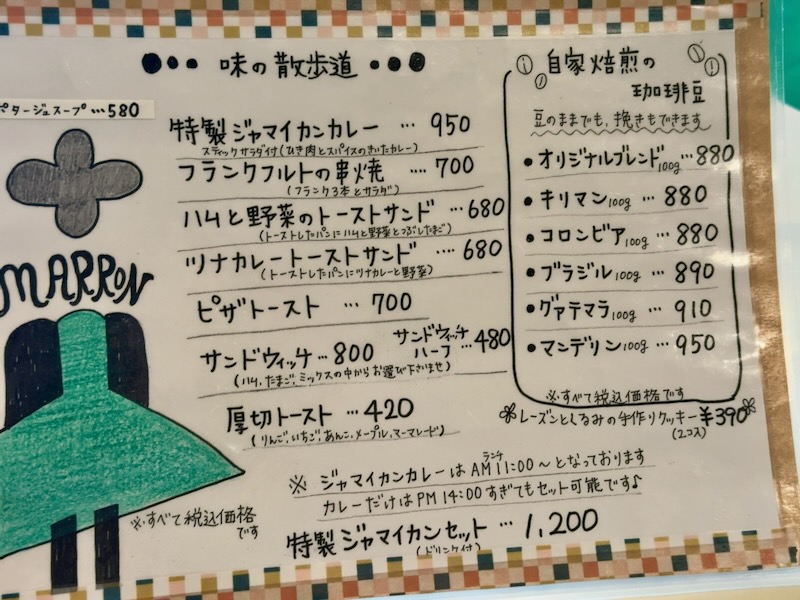 味の散歩道
タージュスープ…580
特製ジャマイカンカレー … 950
スティックサラダ付(ひき肉とスパイスのきいたカレー)
フランクフルトの串焼 …. 700
(フランク3本とサラダ)
ハムと野菜のトーストサンド…680
(トーストしたパンにハムと野菜とつぶしたまご)
ツナカレートーストサンド … 680
(トーストしたパンにツナカレーと野菜)
ピザトースト … 700
サンドウィッチ…800
サンドウィッチ
ハーフ …480
(ハム、たまご、ミックスの中からお選び下さいませ)
厚切トースト …420
(りんご、いちご、あんこ、メープル、マーマレード)
MARRON
※すべて税込価格
です
※ ジャマイカンカレーはAM11:00~となっております
ランチ
カレーだけはPM14:00すぎてもセット可能です♪
特製ジャマイカンセット … 1,200
(ドリンク付)
自家焙煎の
珈琲豆
豆のままでも、挽きもできます
•オリジナルブレンド100g…880
•キリマン100g … 880
•コロンビア100g … 880
•ブラジル100g … 890
•グァテマラ100g … 910
•マンデリン100g … 950
※すべて税込価格です
レーズンとくるみの手作りクッキー ¥390
(2コ入)